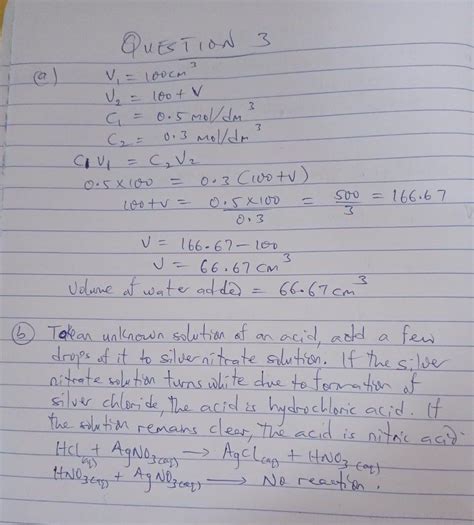 QUESTION 3
(a) V₁ = 100cm³
V₂ = 100 + V
C₁ = 0.5 mol/dm³
C₂ = 0.3 mol/dm³
C₁V₁ = C₂V₂
0.5 × 100 = 0.3 (100+V)
100+V = 0.5 × 100 / 0.3 = 500/3 = 166.67
V = 166.67 - 100
V = 66.67 cm³
Volume of water added = 66.67 cm³
(b) Take an unknown solution of an acid, add a few
drops of it to silver nitrate solution. If the silver
nitrate solution turns white due to formation of
silver chloride, the acid is hydrochloric acid. If
the solution remains clear, the acid is nitric acid.
HCl(aq) + AgNO₃(aq) → AgCl(aq) + HNO₃(aq)
HNO₃(aq) + AgNO₃(aq) → No reaction.